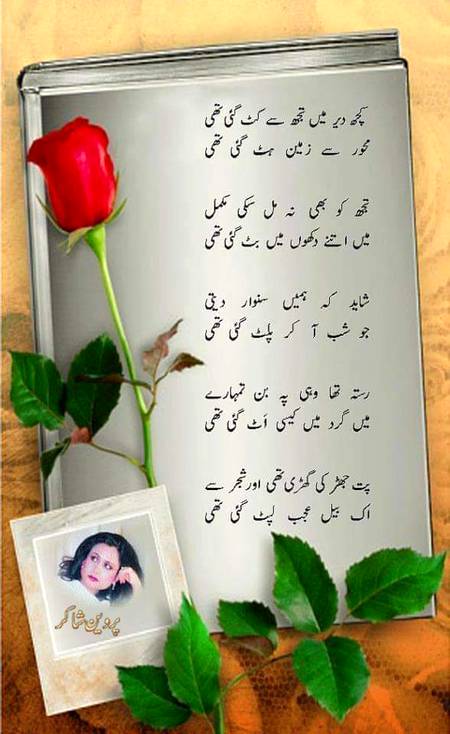 کچھ دیر میں تجھ سے کٹ گئی تھی
محور سے زمین ہٹ گئی تھی
تجھ کو بھی نہ مل سکی مکمل
میں اتنے دکھوں میں بٹ گئی تھی
شاید کہ ہمیں سنوار دیتی
جو شب آ کر پلٹ گئی تھی
رستہ تھا وہی پہ بن تمہارے
میں گرد میں کیسی اَٹ گئی تھی
پت جھڑ کی گھڑی تھی اور شجر سے
اک بیل عجب لپٹ گئی تھی
پروین شاکر